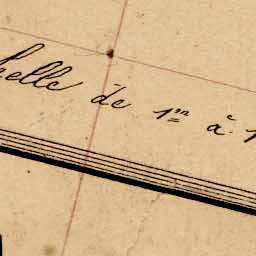 helle de 1m à 1